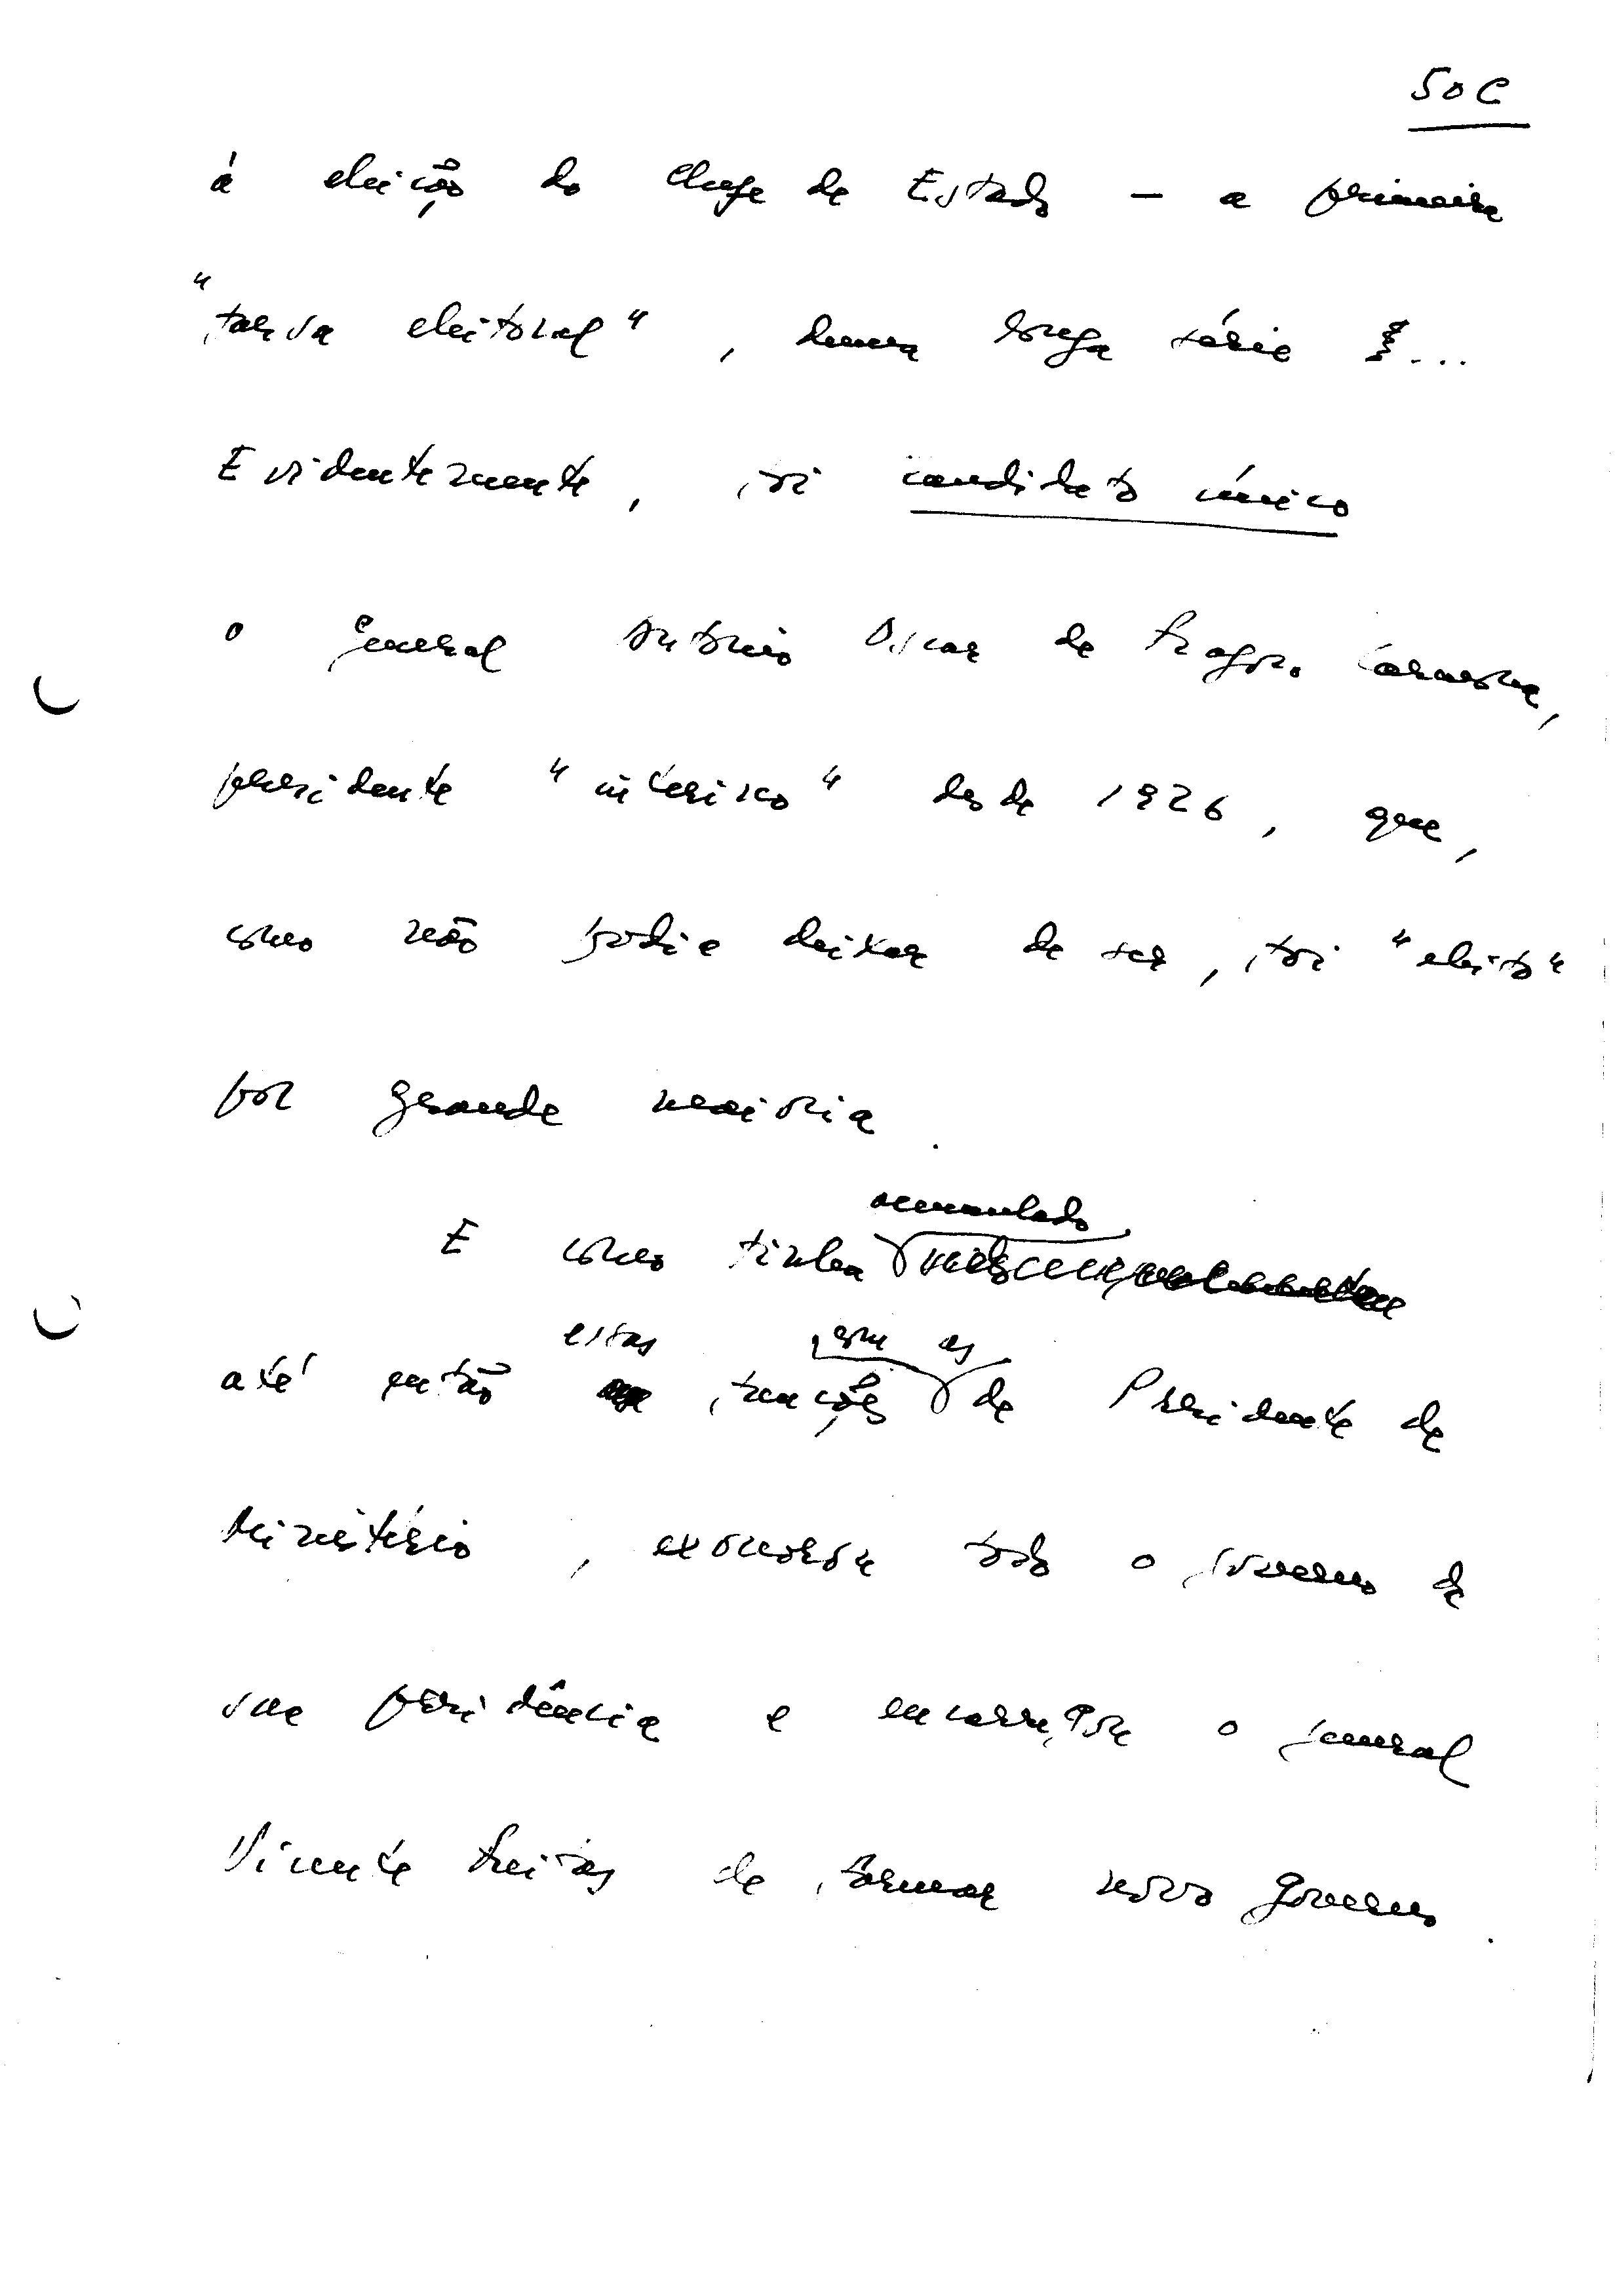 50C
à eleição do Chefe de Estado – a primeira
"farsa eleitoral", duma longa série ...
Evidentemente, foi candidato único
o general António Oscar de Fragoso Carmona,
presidente "interino" desde 1926, que,
como não podia deixar de ser, foi "eleito"
por grande maioria.
acumulado
E como tinha
estas com as
até então funções de Presidente de
Ministério, exonerou todo o governo de
sua presidência e encarregou o general
Vicente Freitas de formar novo governo.